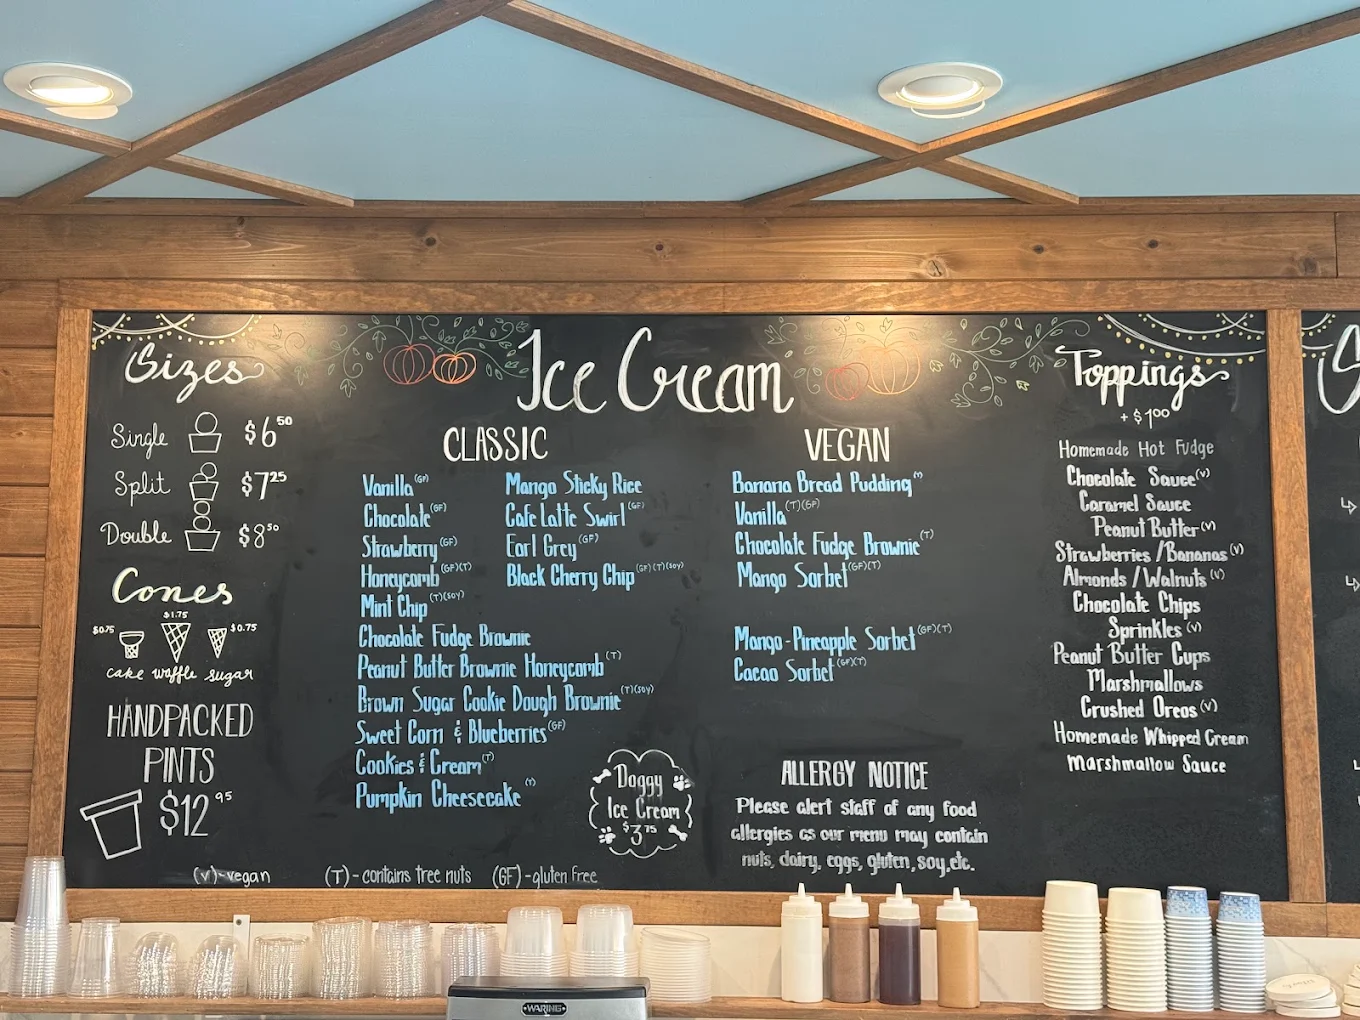 Ice Cream
Sizes
Single $6.50
Split $7.25
Double $8.50
Cones
$0.75 $1.75 $0.75
cake waffle sugar
HANDPACKED
PINTS
$12.95
CLASSIC
Vanilla (GF)
Chocolate (GF)
Strawberry (GF)
Honeycomb (GF)(T)
Mint Chip (T)(SOY)
Chocolate Fudge Brownie
Peanut Butter Brownie Honeycomb (T)
Brown Sugar Cookie Dough Brownie (T)(SOY)
Sweet Corn & Blueberries (GF)
Cookies & Cream (T)
Pumpkin Cheesecake (T)
Mango Sticky Rice
Cafe Latte Swirl (GF)
Earl Grey (GF)
Black Cherry Chip (GF)(T)(SOY)
Doggy
Ice Cream
$3.75
VEGAN
Banana Bread Pudding
Vanilla (T)(GF)
Chocolate Fudge Brownie (T)
Mango Sorbet (GF)(T)
Mango-Pineapple Sorbet (GF)(T)
Cacao Sorbet (GF)(T)
ALLERGY NOTICE
Please alert staff of any food
allergies as our menu may contain
nuts, dairy, eggs, gluten, soy, etc.
Toppings
+ $1.00
Homemade Hot Fudge
Chocolate Sauce (V)
Caramel Sauce
Peanut Butter (V)
Strawberries / Bananas (V)
Almonds / Walnuts (V)
Chocolate Chips
Sprinkles (V)
Peanut Butter Cups
Marshmallows
Crushed Oreos (V)
Homemade Whipped Cream
Marshmallow Sauce
(V)-vegan (T)-contains tree nuts (GF)-gluten free
WARING